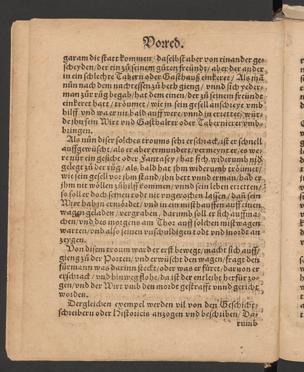 Vorred.
garam die statt kommen / daselbst aber von einander ge-
scheyden / der ein zů seinem gůten freündt / aber der ander
in ein schlechte Tabern oder Gasthauß einkeret / Als
nun nach dem nachtessen zů beth gieng / vnnd sich yeder-
man zůr růg begab / hat dem einen / der zů seinem freündt
einkeret hatt / troümet / wie jn sein gesell anschreye vmb
hilff vnd wa er jm bald auff were / vnnd jn errettet / wür-
de jhn sein Wirt vnd Gasthalter oder Tabernierer vmb-
bringen.
Als nůn diser solches troums sehr erschrack / ist er schnell
auffgewüscht / als er aber ermundert / vermeynt er / es we-
re nůr ein gesicht oder Fantasey / hat sich widerumb nid
gelegt zů der růg / als bald hat jhm widerumb troümet /
wie sein gesell vor jhm stand / jhn bett vnnd erman / hab er
jhm nit wöllen zů hilff kommen / vnnd sein leben erretten /
so soll er doch seinen todt nit vngerochen lassen / dañ sein
Wirt hab jn ermördet / vnd jn in ein misthauffen auff einen
wagen geladen / vergraben / darumb soll er sich auffma-
chen / vnd des morgens am Thor auff solchen mistwagen
warten / vnd also seinen vnschuldigen todt vnd mordt an-
zeygen.
Von disem troum ward er erst bewegt / macht sich auff /
gieng zů der Porten / vnd erwüscht den wagen / fragt den
fůrmann was darinn steckt / oder was er fůret / darvon er
erschrack / vnd hinweg flohe / da ist der entleibt herfür zo-
gen / vnd der Wirt vmb den mordt gestrafft vnnd gericht
worden.
Dergleichen exempel werden vil von den Geschicht-
schreibern oder Historicis anzogen vnd beschriben / Da-
rumb